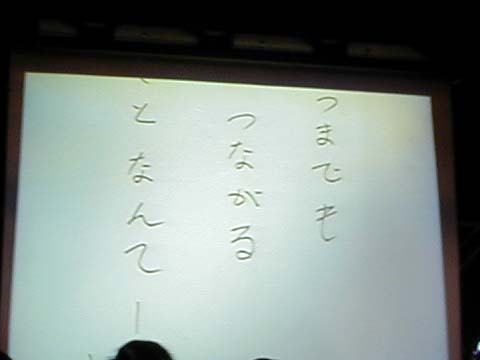 つまでも
つながる
となんて